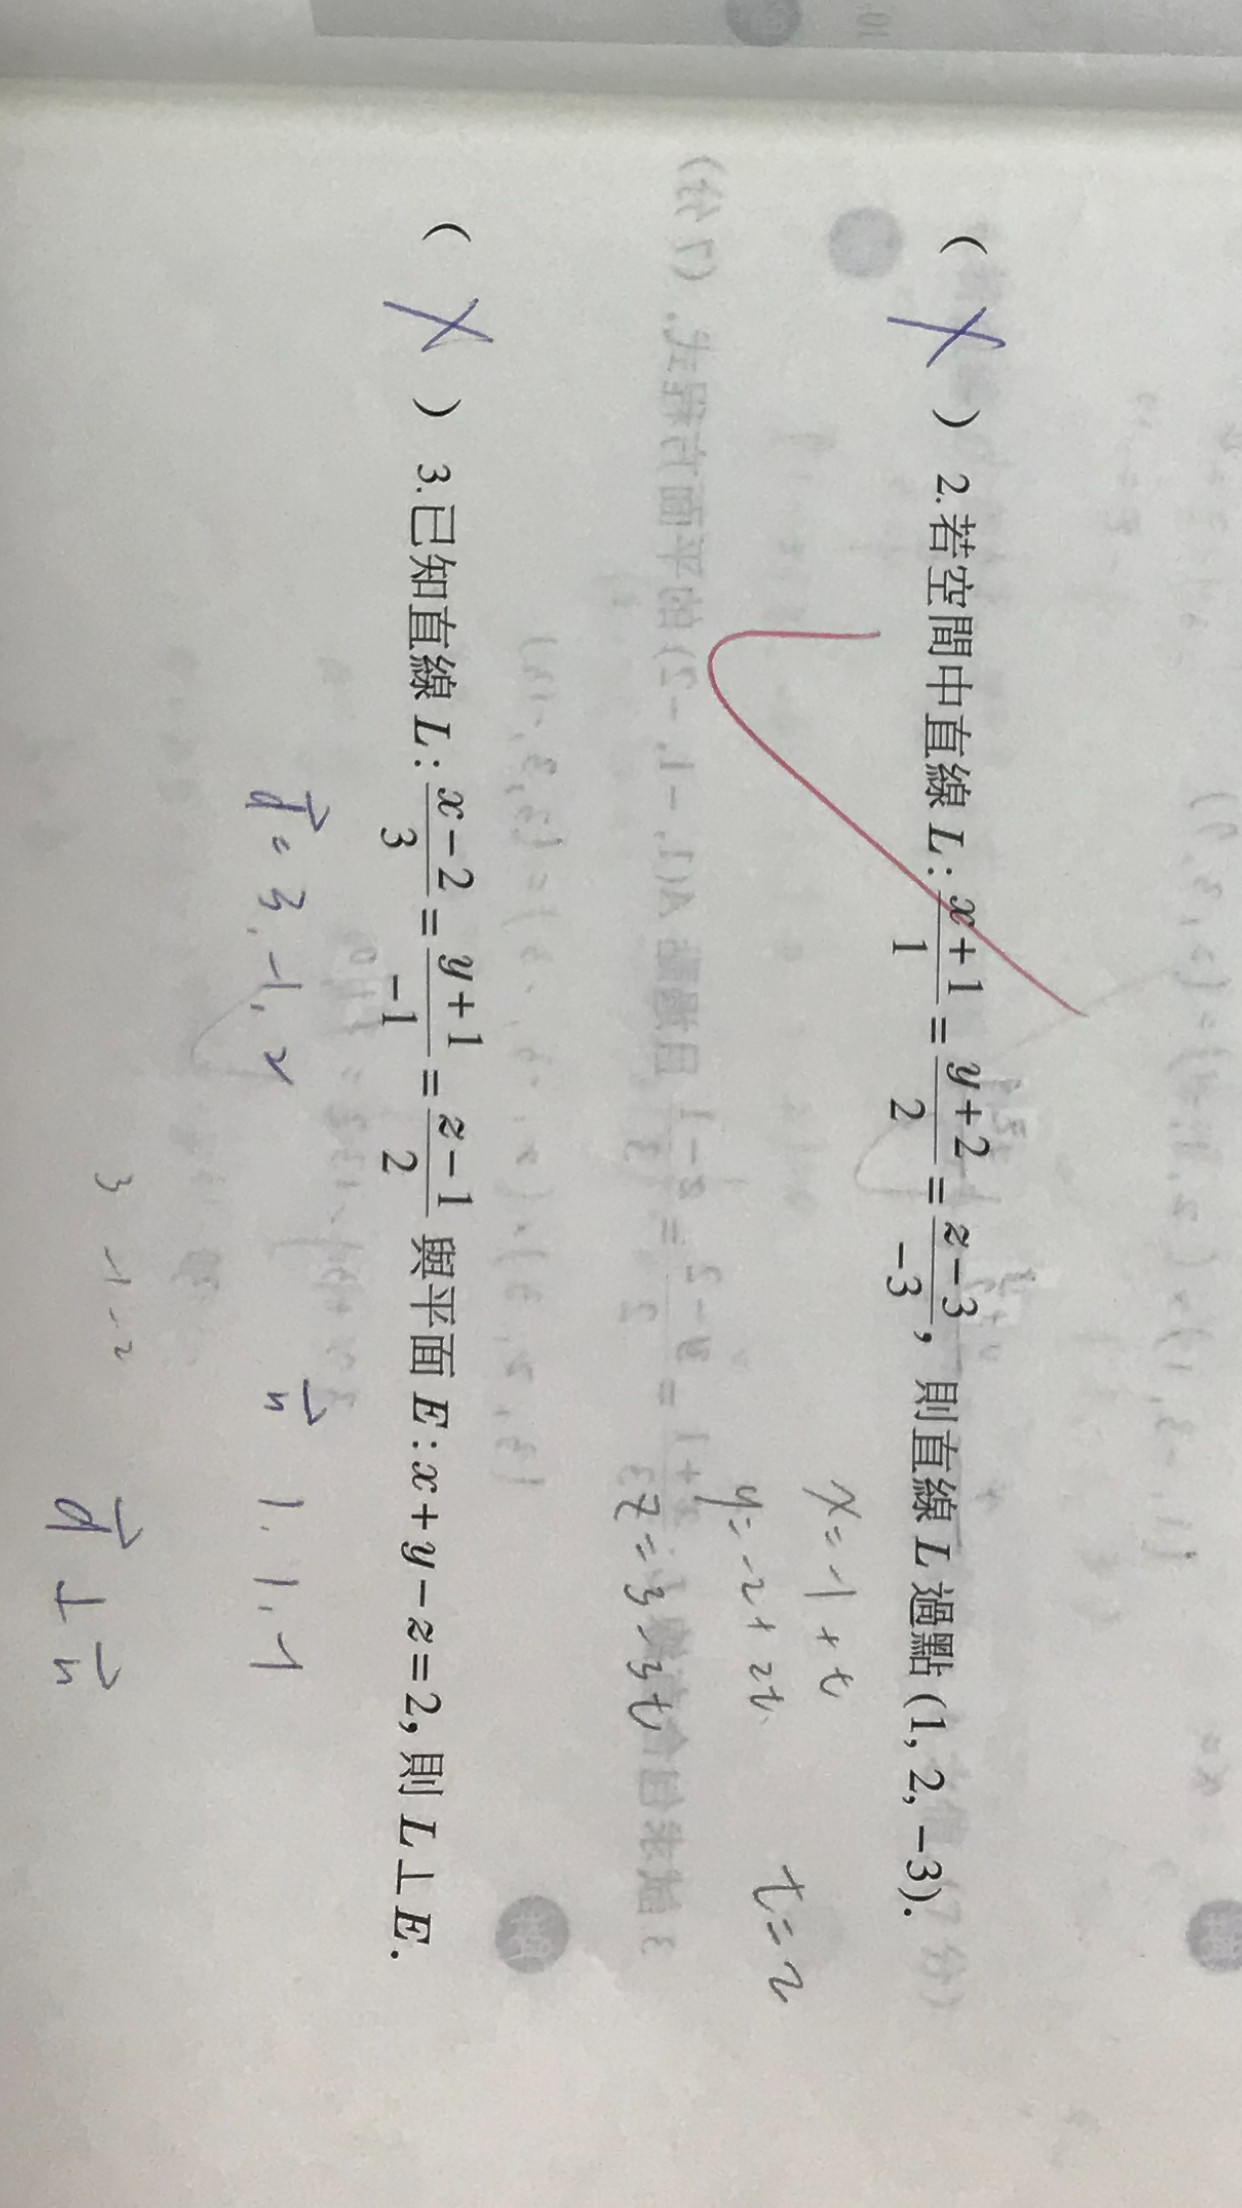 ( X ) 2.若空間中直線 L : \frac{x+1}{1} = \frac{y+2}{2} = \frac{z-3}{-3}, 則直線 L 過點 (1, 2, −3).
x=-1+t
y=-2+2t
z=3-3t
t=2
( X ) 3.已知直線 L : \frac{x-2}{3} = \frac{y+1}{-1} = \frac{z-1}{2} 與平面 E : x+y−z=2, 則 L⊥E.
\vec{d}=3,-1,2
\vec{n} 1,1,-1
3 -1 -2
\vec{d} ⊥ \vec{n}